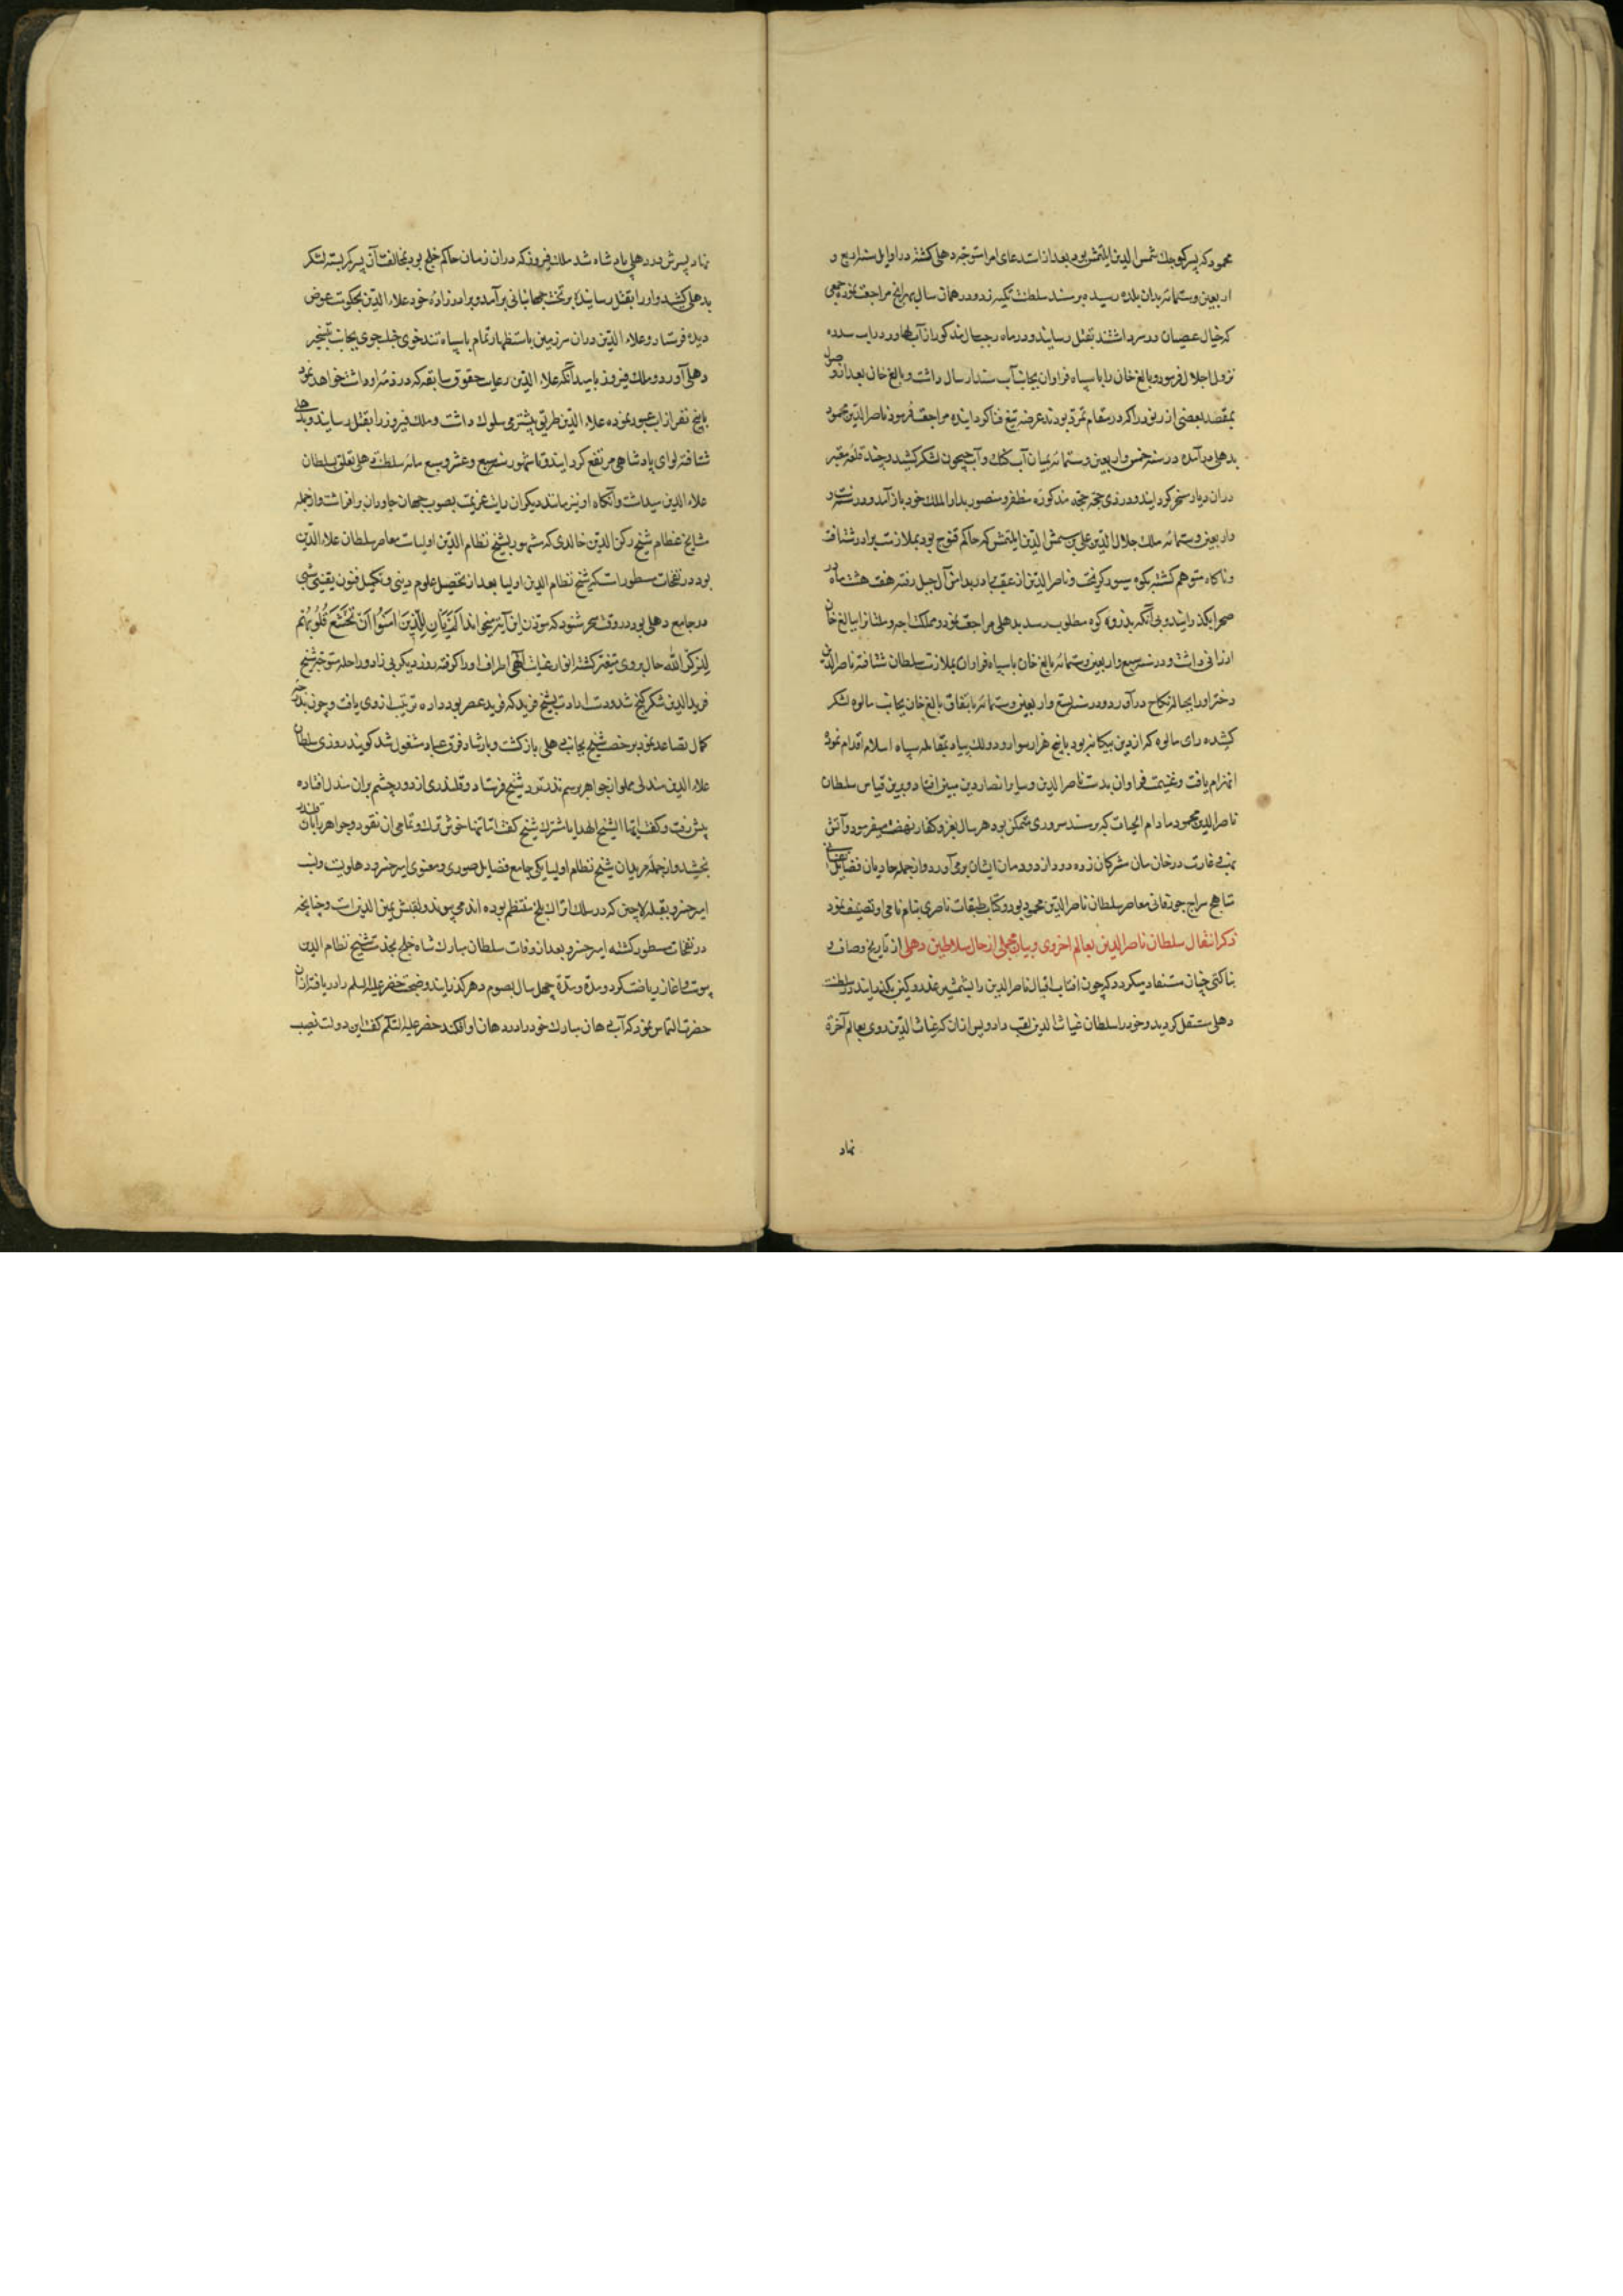 محمود که پسر کوچک شمس الدین ایلتمش بود بعد از استدعای امرا متوجه دهلی کشته در اوایل سنه اربع و
اربعین و ستمائه بدان بلده رسیده بر مسند سلطنت تکیه زد و در همان سال مراجعت نموده جمعی
که خیال عصیان در سر داشتند بقتل رسانید و در ماه رجب سال مذکور از آب لهاور در آب سدره
نزول اجلال فرمود و بالغ خان را با سپاه فراوان بجانب آب سند ارسال داشت و بالغ خان بعد از وصول
بمقصد بعضی از رنود را که در مقام تمرد بودند عرضه تیغ فنا کردانیده مراجعت فرمود ناصر الدین محمود
بدهلی در آمده در سنه خمس و اربعین و ستمائه بمیان آب کنک و آب جیحون لشکر کشید و چند قلعه معتبر
دران دیار مسخر کردانید و در ذی حجه حجه مذکوره مظفر و منصور بدار الملک خود باز آمد و در سنه ست و
واربعین و ستمائه ملک جلال الدین علی بن شمس الدین ایلتمش که حاکم قنوج بود بملازمت برادر شتافت
و ناکاه متوهم کشته بکوه سنور کریخت و ناصر الدین از عقب برادر بدامن آن جبل رفته هفت هشت ماه در
صحرا بکذرانید و بی آنکه بذروه کوه مطلوب رسد بدهلی مراجعت نمود و مملکت اجه و ملتان را ببالغ خان
ارزانی داشت و در سنه سبع و اربعین و ستمائه بالغ خان با سپاه فراوان بملازمت سلطان شتافته ناصر الدین
دختر او را بحباله نکاح در آورد و در سنه تسع و اربعین و ستمائه باتفاق بالغ خان بجانب مالوه لشکر
کشیده رای مالوه که از دین بیکانه بود با پنج هزار سوار و دو لک پیاده بمقابله سپاه اسلام اقدام نموده
انهزام یافت و غنیمت فراوان بدست ناصر الدین و سایر انصار دین مبین افتاد و برین قیاس سلطان
ناصر الدین محمود مادام الحیات که بر مسند سروری متمکن بود هر سال بغزو کفار نهضت میفرمود و آتش
نهب و غارت در خان مان مشرکان زده دود از دودمان ایشان بر می آورد و از جمله حاویان فضایل
منهاج سراج جوزقانی معاصر سلطان ناصر الدین محمود بود و کتاب طبقات ناصری بنام نامی او تصنیف نمود
ذکر انتقال سلطان ناصر الدین بعالم اخروی و بیان مجملی از حال سلاطین دهلی از تاریخ وصاف و
بناکتی چنان مستفاد میکردد که چون آفتاب اقبال ناصر الدین را بشمشیر غدر و کین بکذرانید در سلطنت
دهلی مستقل کردید و خود را سلطان غیاث الدین لقب داد و پس ازان که غیاث الدین روی بعالم آخرة
نهاد
نهاد پسرش در دهلی پادشاه شد ملک فیروز که دران زمان حاکم خلج بود بمخالفت آن پسر کمر بسته لشکر
بدهلی کشید و او را بقتل رسانیده بر تخت جهانبانی بر آمد و برادر زاده خود علاء الدین بحکومت عوض
دیده فرستاد و علاء الدین دران سرزمین باستظهار تمام با سپاه تند خوی جنکجوی بجانب تسخیر
دهلی آورد و ملک فیروز بامید آنکه علاء الدین رعایت حقوق سابقه که در ذمه او داشت خواهد نمود
با پنج نفر از اب عبور نموده علاء الدین طریق بیشرمی سلوک داشت و ملک فیروز را بقتل رسانید و بدهلی
شتافته لوای پادشاهی مرتفع کردانید و تا شهور سنه سبع و عشر و سبع مائه سلطنت دهلی تعلق بسلطان
علاء الدین میداشت و آنکاه او نیز مانند دیکران رایت عزیمت بصوب جهان جاودان بر افراشت و از جمله
مشایخ عظام شیخ رکن الدین خالدی که مشهور بشیخ نظام الدین اولیاست معاصر سلطان علاء الدین
بود در نفحات مسطورست که شیخ نظام الدین اولیا بعد از تحصیل علوم دینی و تکمیل فنون یقینی شبی
در جامع دهلی بود در وقت سحر شنود که موذن این آیت میخواند الم یان للذین امنوا ان تخشع قلوبهم
لذکر الله حال بروی متغیر کشته انوار غیات الهی اطراف او را کرفته روز دیکر بی زاد و راحله متوجه شیخ
فرید الدین شکر کنج شد و دست ارادت بشیخ فرید که فرید عصر بود داده تربیت از وی یافت و چون بدرجه
کمال تصاعد نمود برخصت شیخ بجانب دهلی باز کشت و بارشاد فرق عباد مشغول شد کویند روزی سلطان
علاء الدین مندلی مملو از جواهر برسم نذر نزد شیخ فرستاد و قلندری از دور چشم بران مندل افتاده
پیش رفت و کفت ایها الشیخ الهدایا مشترک شیخ کفت اما تنها خوشترک و تمامی ان نقود و جواهر بآن قلندر
بخشید و از جمله مریدان شیخ نظام اولیا یکی جامع فضایل صوری و معنوی امیر خسرو دهلویست و نسب
امیر خسرو بقبیله لاچین که در سلک اتراک بلخ منتظم بوده اند می پیوندد و لقبش یمین الدین است و چنانچه
در نفحات مسطور کشته امیر خسرو بعد از وفات سلطان مبارک شاه خلج بخدمت شیخ نظام الدین
پیوست و اغاز ریاضت کرد و مدة مدیدة چهل سال بصوم دهر کذرانید و بصحبت خضر علیه السلم را دریافته ازان
حضرت التماس نمود که آب دهان مبارک خود را در دهان او افکند خضر علیه السلم کفت این دولت نصیب